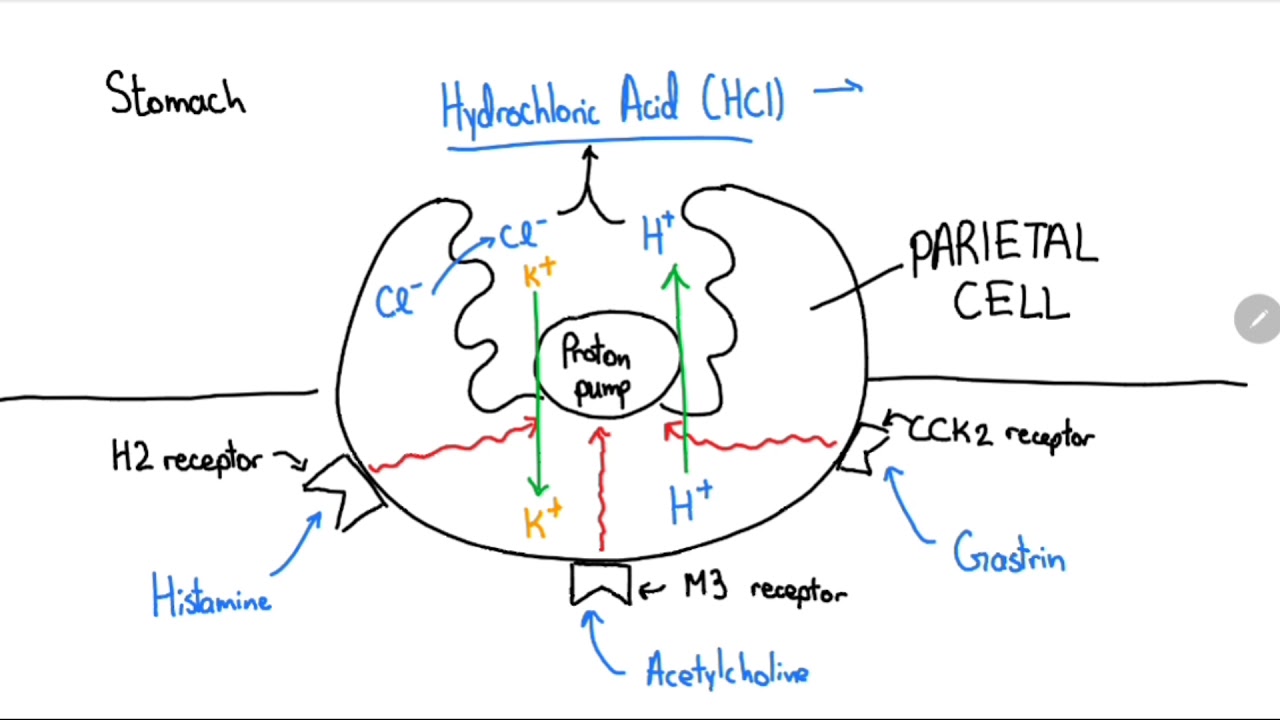 Stomach
Hydrochloric Acid (HCl) →
Cl⁻
H⁺
K⁺
Cl⁻
PARIETAL
CELL
Proton
pump
H2 receptor
CCK2 receptor
K⁺
H⁺
Histamine
M3 receptor
Gastrin
Acetylcholine